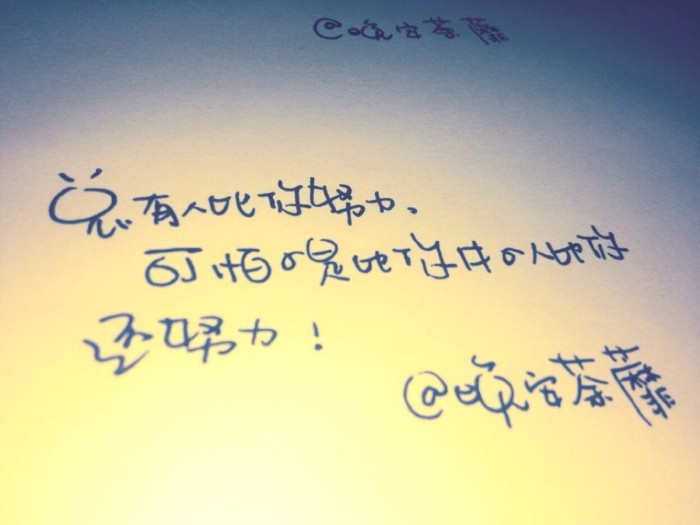 @晚安荼蘼
总有人比你努力、
可怕の是比你牛の人比你
还努力！
@晚安荼蘼